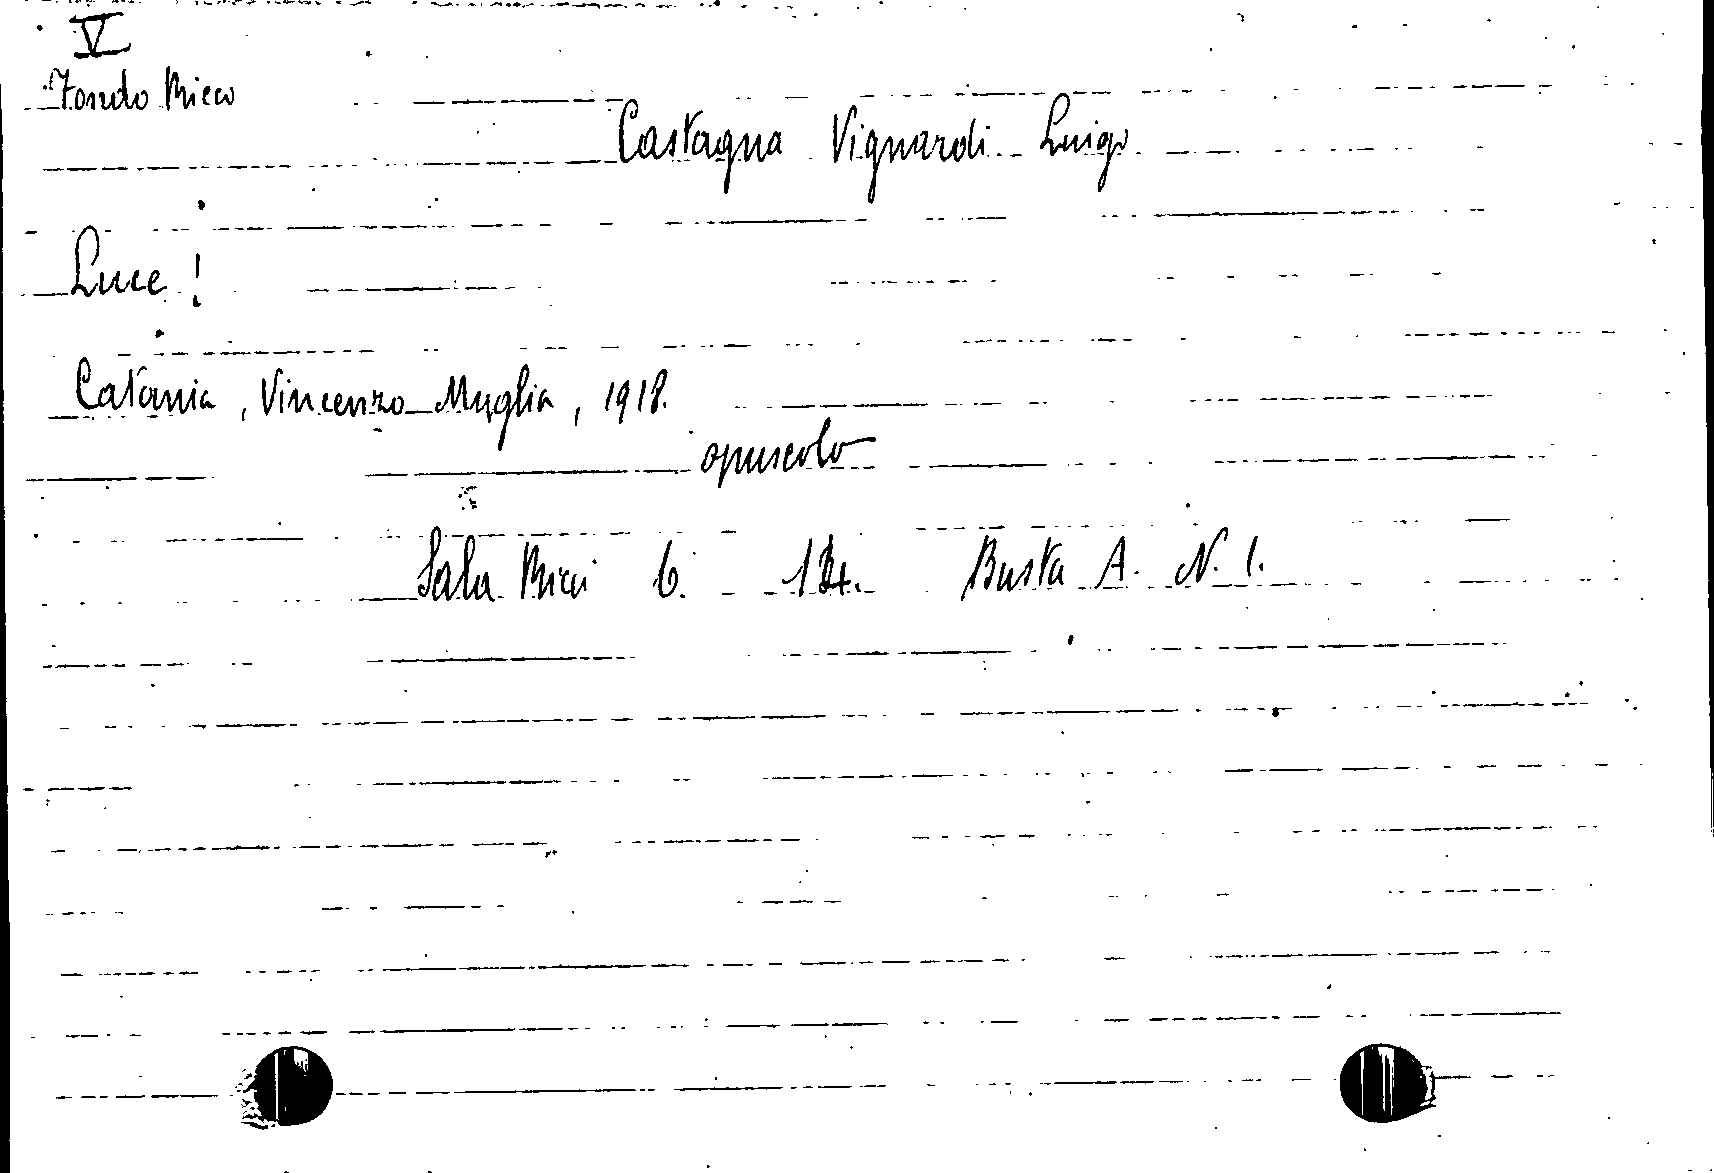 V
Fondo Ricca
Castagna Vignardi Luigi
Luce!
Catania, Vincenzo Muglia, 1918.
opuscolo
Sala Ricci 6. 14. Busta A. N. 1.